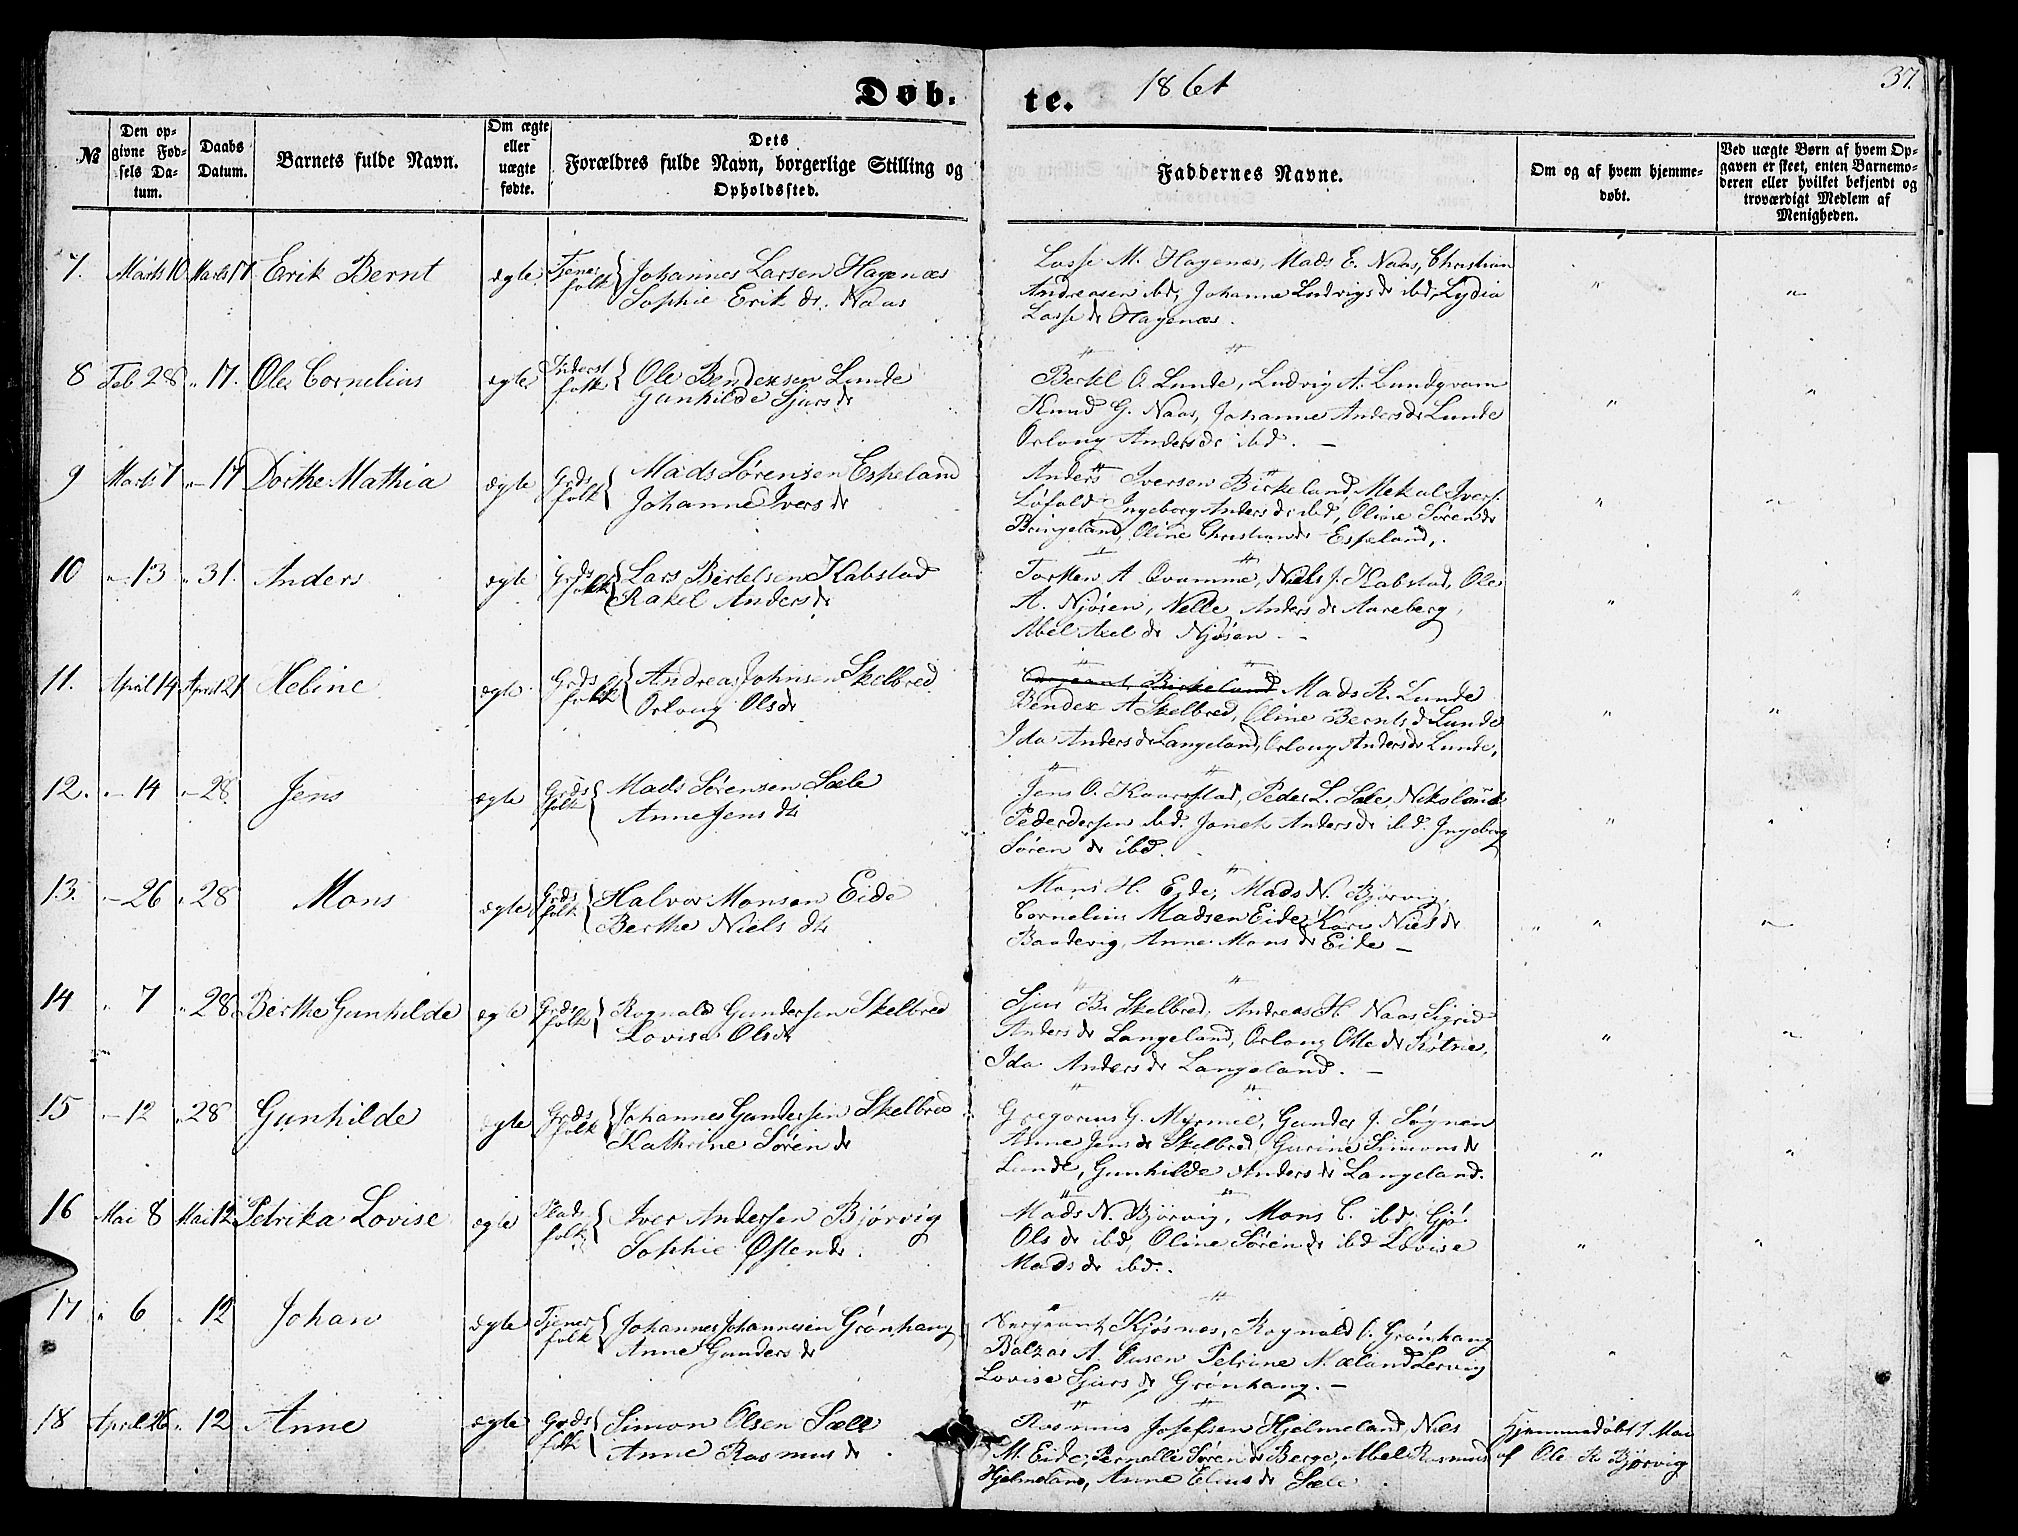 Døb.
te.
1861
37.
№
Den op-
givne Fød-
sels Da-
tum.
Daabs
Datum.
Barnets fulde Navn.
Om ægte
eller
uægte
fødte.
Dets
Forældres fulde Navn, borgerlige Stilling og
Opholdssted.
Faddernes Navne.
Om og af hvem hjemme-
døbt.
Ved uægte Børn af hvem Op-
gaven er skeet, enten Barnemo-
deren eller hvilket bekjendt og
troværdigt Medlem af
Menigheden.
7. Marts 10 Marts 17 Erik Bernt ægte Tjener folk Johannes Larsen Hagenæs
Sophie Erik dr. Naas
Lasse M. Hagenæs, Mads E. Naas, Christian
Andreasen ibd, Johanne Ludvigs dr ibd, Lydia
Lasse dr Hagenæs.
8 Feb 28 " 17. Ole Cornelius ægte Inderst folk Ole Bendexsen Lunde
Gunhilde Sjurs dr
Bertel O. Lunde, Ludvig A. Lundqvam
Knud G. Naas, Johanne Anders dr Lunde
Orloug Anders dr ibd. –
9 Marts 7 " 17 Dorthe Mathia ægte Grds folk Mads Sørensen Espeland
Johanne Ivers dr
Anders Iversen Birkeland, Mekal Ivers.
Løfald, Ingeborg Anders dr ibd, Oline Søren dr
Bringeland, Oline Christian dr Espeland,.
10 " 13 " 31. Anders ægte Grds folk Lars Bertelsen Habstad
Rakel Anders dr
Torsten A Qvamme, Niels J. Habstad, Ole
A. Njøsen, Nelle Anders dr Aareberg,
Abel Axel dr Njøsen. –
11. April 14 April 21 Heline ægte Grds folk Andreas Johnsen Skelbred
Orloug Ols dr
Sergeant Birkeland Mads R. Lunde
Bendex A Skelbred, Oline Bernts d Lunde
Ida Anders dr Langeland, Orloug Anders dr Lunde,
12. " 14 " 28 Jens ægte Grds folk Mads Sørensen Sæle
Anne Jens dtr
Jens O. Kaarstad, Peder L. Sæle, Nikolai
Pedersen ibd. Janek Anders dr ibd. Ingeborg
Søren dr ibd.
13. " 26 " 28 Mons ægte Grds folk Halvor Monsen Eide
Berthe Niels dtr
Mons H. Eide, Mads N. Bjørvig,
Cornelius Madsen Eide, Kari Niels dr
Baadevig, Anne Mons dr Eide –
14 " 7 " 28 Berthe Gunhilde ægte Grds folk Rognald Gundersen Skelbred
Lovise Ols dr
Sjur B. Skelbred, Andreas H. Naas, Sigrid
Anders dr Langeland, Orloug Olle dr
Ida Anders dr Langeland. –
15 " 12 " 28 Gunhilde ægte Grds folk Johannes Gundersen Skelbred
Kathrine Søren dr
Gregorius G. Myrmel, Gunder J. Søgnen
Anne Jens dr Skelbred, Gurine Simons dr
Lunde, Gunhilde Anders dr Langeland.
16 Mai 8 Mai 12 Petrika Lovise ægte Plads folk Iver Andersen Bjørvig
Sophie Østen dr.
Mads N. Bjørvig, Mons C. ibd. Gjø.
Ols dr ibd, Oline Søren dr ibd Lovise
Mads dr ibd.
17 " 6 " 12 Johan ægte Tjener folk Johannes Johannesen Grønhaug
Anne Gunders dr
Sergeant Kjøsnes, Rognald O. Grønhaug
Balzar A. Petrine N. Lervig
Lovise Sjurs dr Grønhaug. –
18 April 26 " 12 Anne ægte Grds folk Simon Olsen Sæle
Anne Rasmus dr.
Rasmus Josefsen Hjelmeland, Niels
M. Eide, Pernille Søren dr Berge, Abel Rasmus
Hjelmeland, Anne Elius dr Sæle
Hjemmedøbt 1. Mai
af Ole R Bjørvig